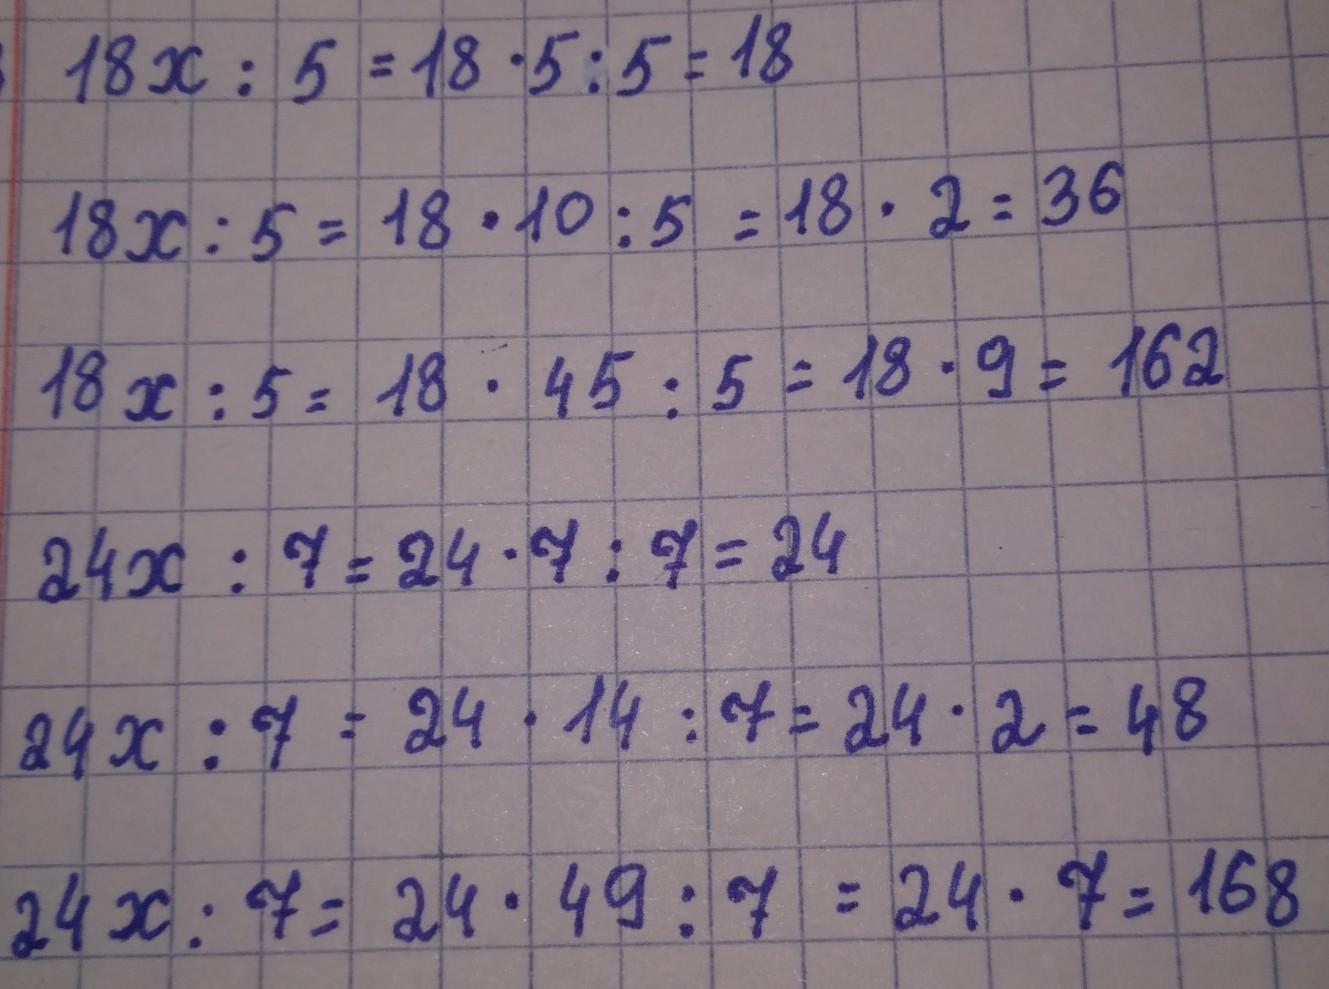 18x : 5 = 18 · 5 : 5 = 18
18x : 5 = 18 · 10 : 5 = 18 · 2 = 36
18x : 5 = 18 · 45 : 5 = 18 · 9 = 162
24x : 7 = 24 · 7 : 7 = 24
24x : 7 = 24 · 14 : 7 = 24 · 2 = 48
24x : 7 = 24 · 49 : 7 = 24 · 7 = 168